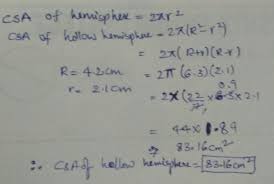 CSA of hemisphere = 2πr²
CSA of hollow hemisphere = 2π(R²-r²)
= 2π(R+r)(R-r)
R = 4.2cm
= 2π(6.3)(2.1)
r = 2.1cm
0.9
= 2×(22/7)×6.3×2.1
= 44×1.89
= 83.16cm²
∴ CSA of hollow hemisphere = 83.16cm²